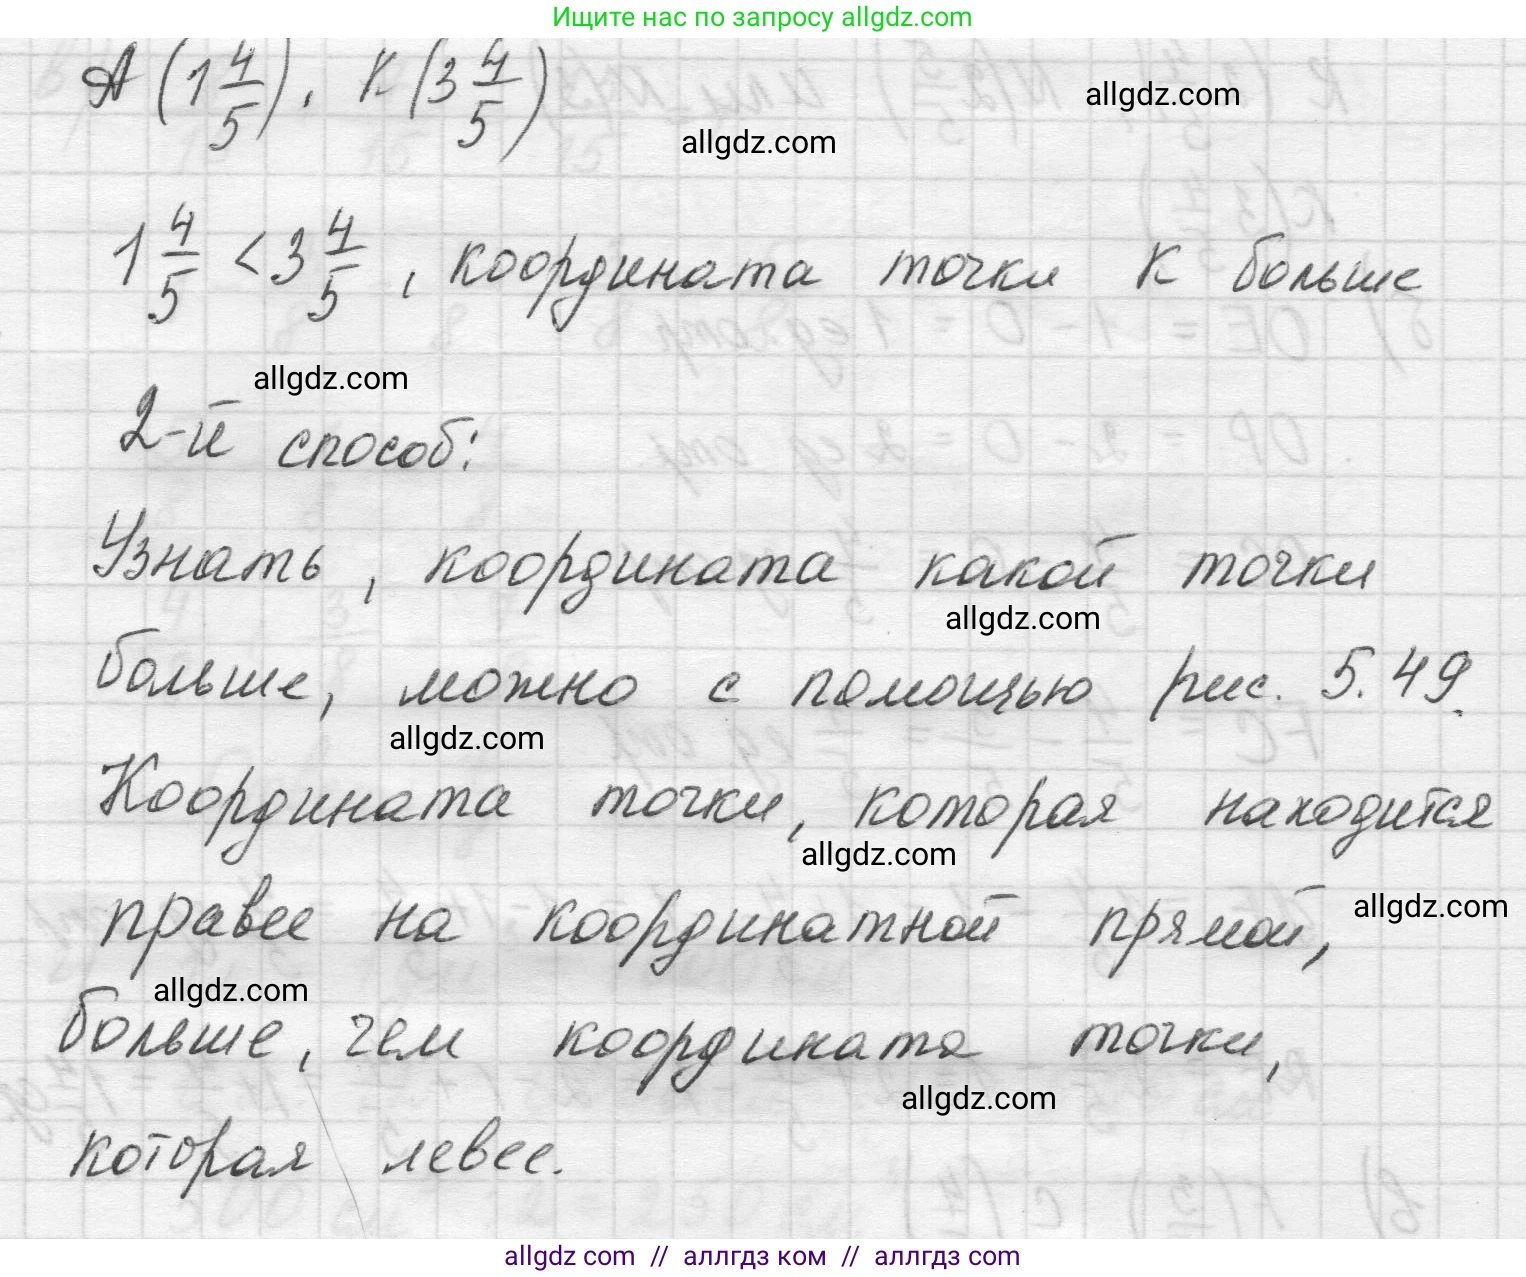 Ищите нас по запросу allgdz.com
A (1 4/5), K (3 4/5)
allgdz.com
allgdz.com
1 4/5 < 3 4/5, координата точки K больше
allgdz.com
2-й способ:
Узнать, координата какой точки
allgdz.com
больше, можно с помощью рис. 5.49.
allgdz.com
Координата точки, которая находится
allgdz.com
правее на координатной прямой,
allgdz.com
allgdz.com
больше, чем координата точки,
allgdz.com
которая левее.
allgdz com // аллгдз ком // аллгдз com